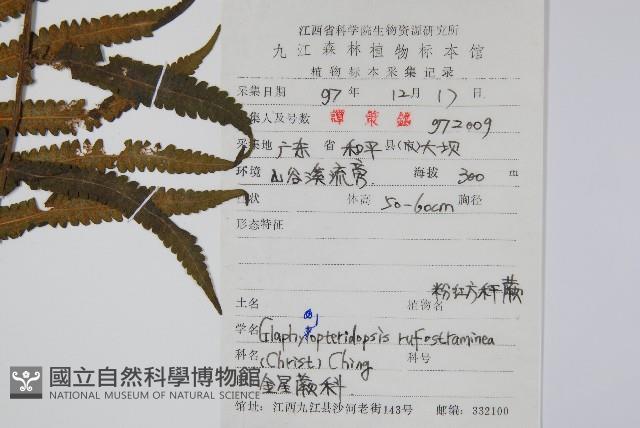 江西省科学院生物资源研究所
九江森林植物标本馆
植物标本采集记录
采集日期 97 年 12 月 17 日
集人及号数 譚策銘 972009
采集地 广东 省 和平 县(市)大坝
环境 山谷溪流旁 海拔 300 m
性状 体高 50-60cm 胸径
形态特征
粉红方秆蕨
土名 植物名
学名 Glaphyropteridopsis rufostraminea
科名 (Christ) Ching 科号
金星蕨科
馆址:江西九江县沙河老街143号 邮编:332100
國立自然科學博物館
NATIONAL MUSEUM OF NATURAL SCIENCE